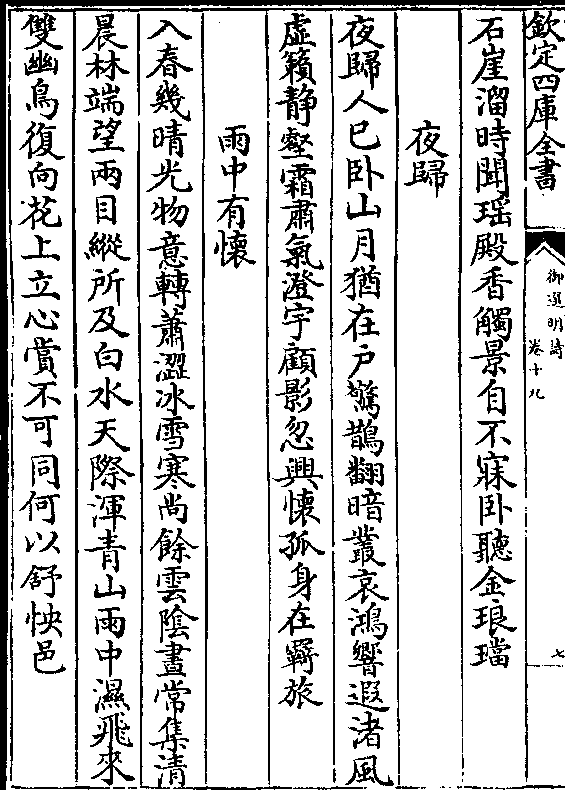 欽定四庫全書
御選明詩
卷十九
七
石崖溜時聞瑶殿香觸景自不寐卧聽金琅璫
夜歸
夜歸人已卧山月猶在户驚鵲翻暗叢哀鴻響遐渚風
虚籟静壑霜肅氣澄宇顧影忽興懷孤身在羇旅
雨中有懷
入春幾晴光物意轉蕭澀冰雪寒尚餘雲陰晝常集清
晨林端望兩目縱所及白水天際渾青山雨中濕飛來
雙幽鳥復向花上立心賞不可同何以舒怏邑